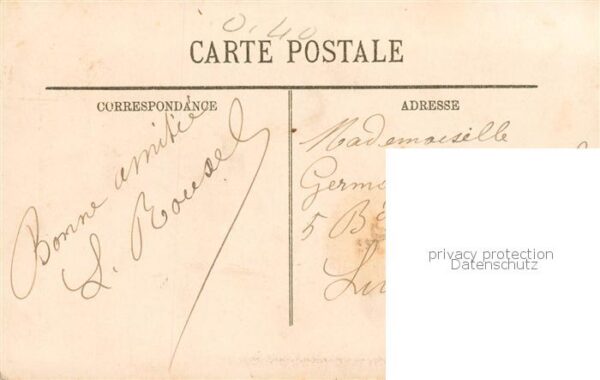 0.40
CARTE POSTALE
CORRESPONDANCE
Bonne amitié
L. Rousel
ADRESSE
Mademoiselle
Germ
5 B
privacy protection
Datenschutz